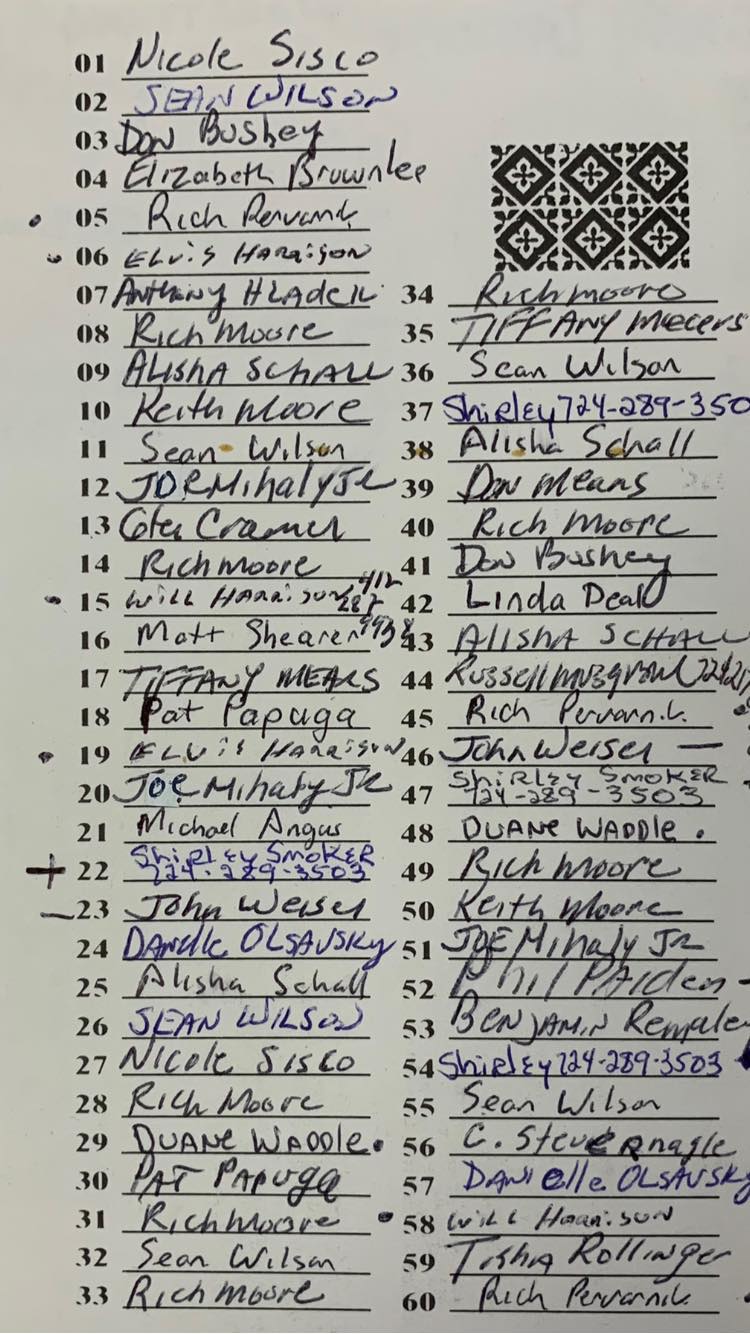 01 Nicole Sisco
02 SEAN WILSON
03 Don Bushey
04 Elizabeth Brownlee
05 Rich Pervarnik
06 ELVIS HARRISON
07 Anthony HLADEK
08 Rich Moore
09 ALISHA SCHALL
10 Keith Moore
11 Sean Wilson
12 JOE Mihaly JR
13 Cramer
14 Rich moore
15 WILL HARRISON 412
16 Matt Shearer
17 TIFFANY MEARS
18 Pat Papuga
19 ELVIS HARRISON
20 JOE Mihaly JR
21 Michael Angus
22 Shirley SmokER
724-289-3503
23 John Weiser
24 DANielle OLSAVSKY
25 Alisha Schall
26 SEAN WILSON
27 Nicole Sisco
28 Rich Moore
29 DUANE WADDLE.
30 PAT PAPUGA
31 Rich Moore
32 Sean Wilson
33 Rich moore
34 Rich moore
35 TIFFANY
36 Sean Wilson
37 Shirley 724-289-350
38 Alisha Schall
39 Don Means
40 Rich Moore
41 Don Bushey
42 Linda Deal
43 ALISHA SCHALL
44 Russell
45 Rich Pervarnik
46 John Weiser
47 ShiRLEY SmokER
724-289-3503
48 DUANE WADDLE.
49 Rich moore
50 Keith Moore
51 JOE Mihaly JR
52 Phil
53 BENJAMIN
54 Shirley 724-289-3503
55 Sean Wilson
56 C. Steve Nagle
57 DANielle OLSAVSKY
58 WILL HARRISON
59 Tisha Rollinger
60 Rich Pervarnik